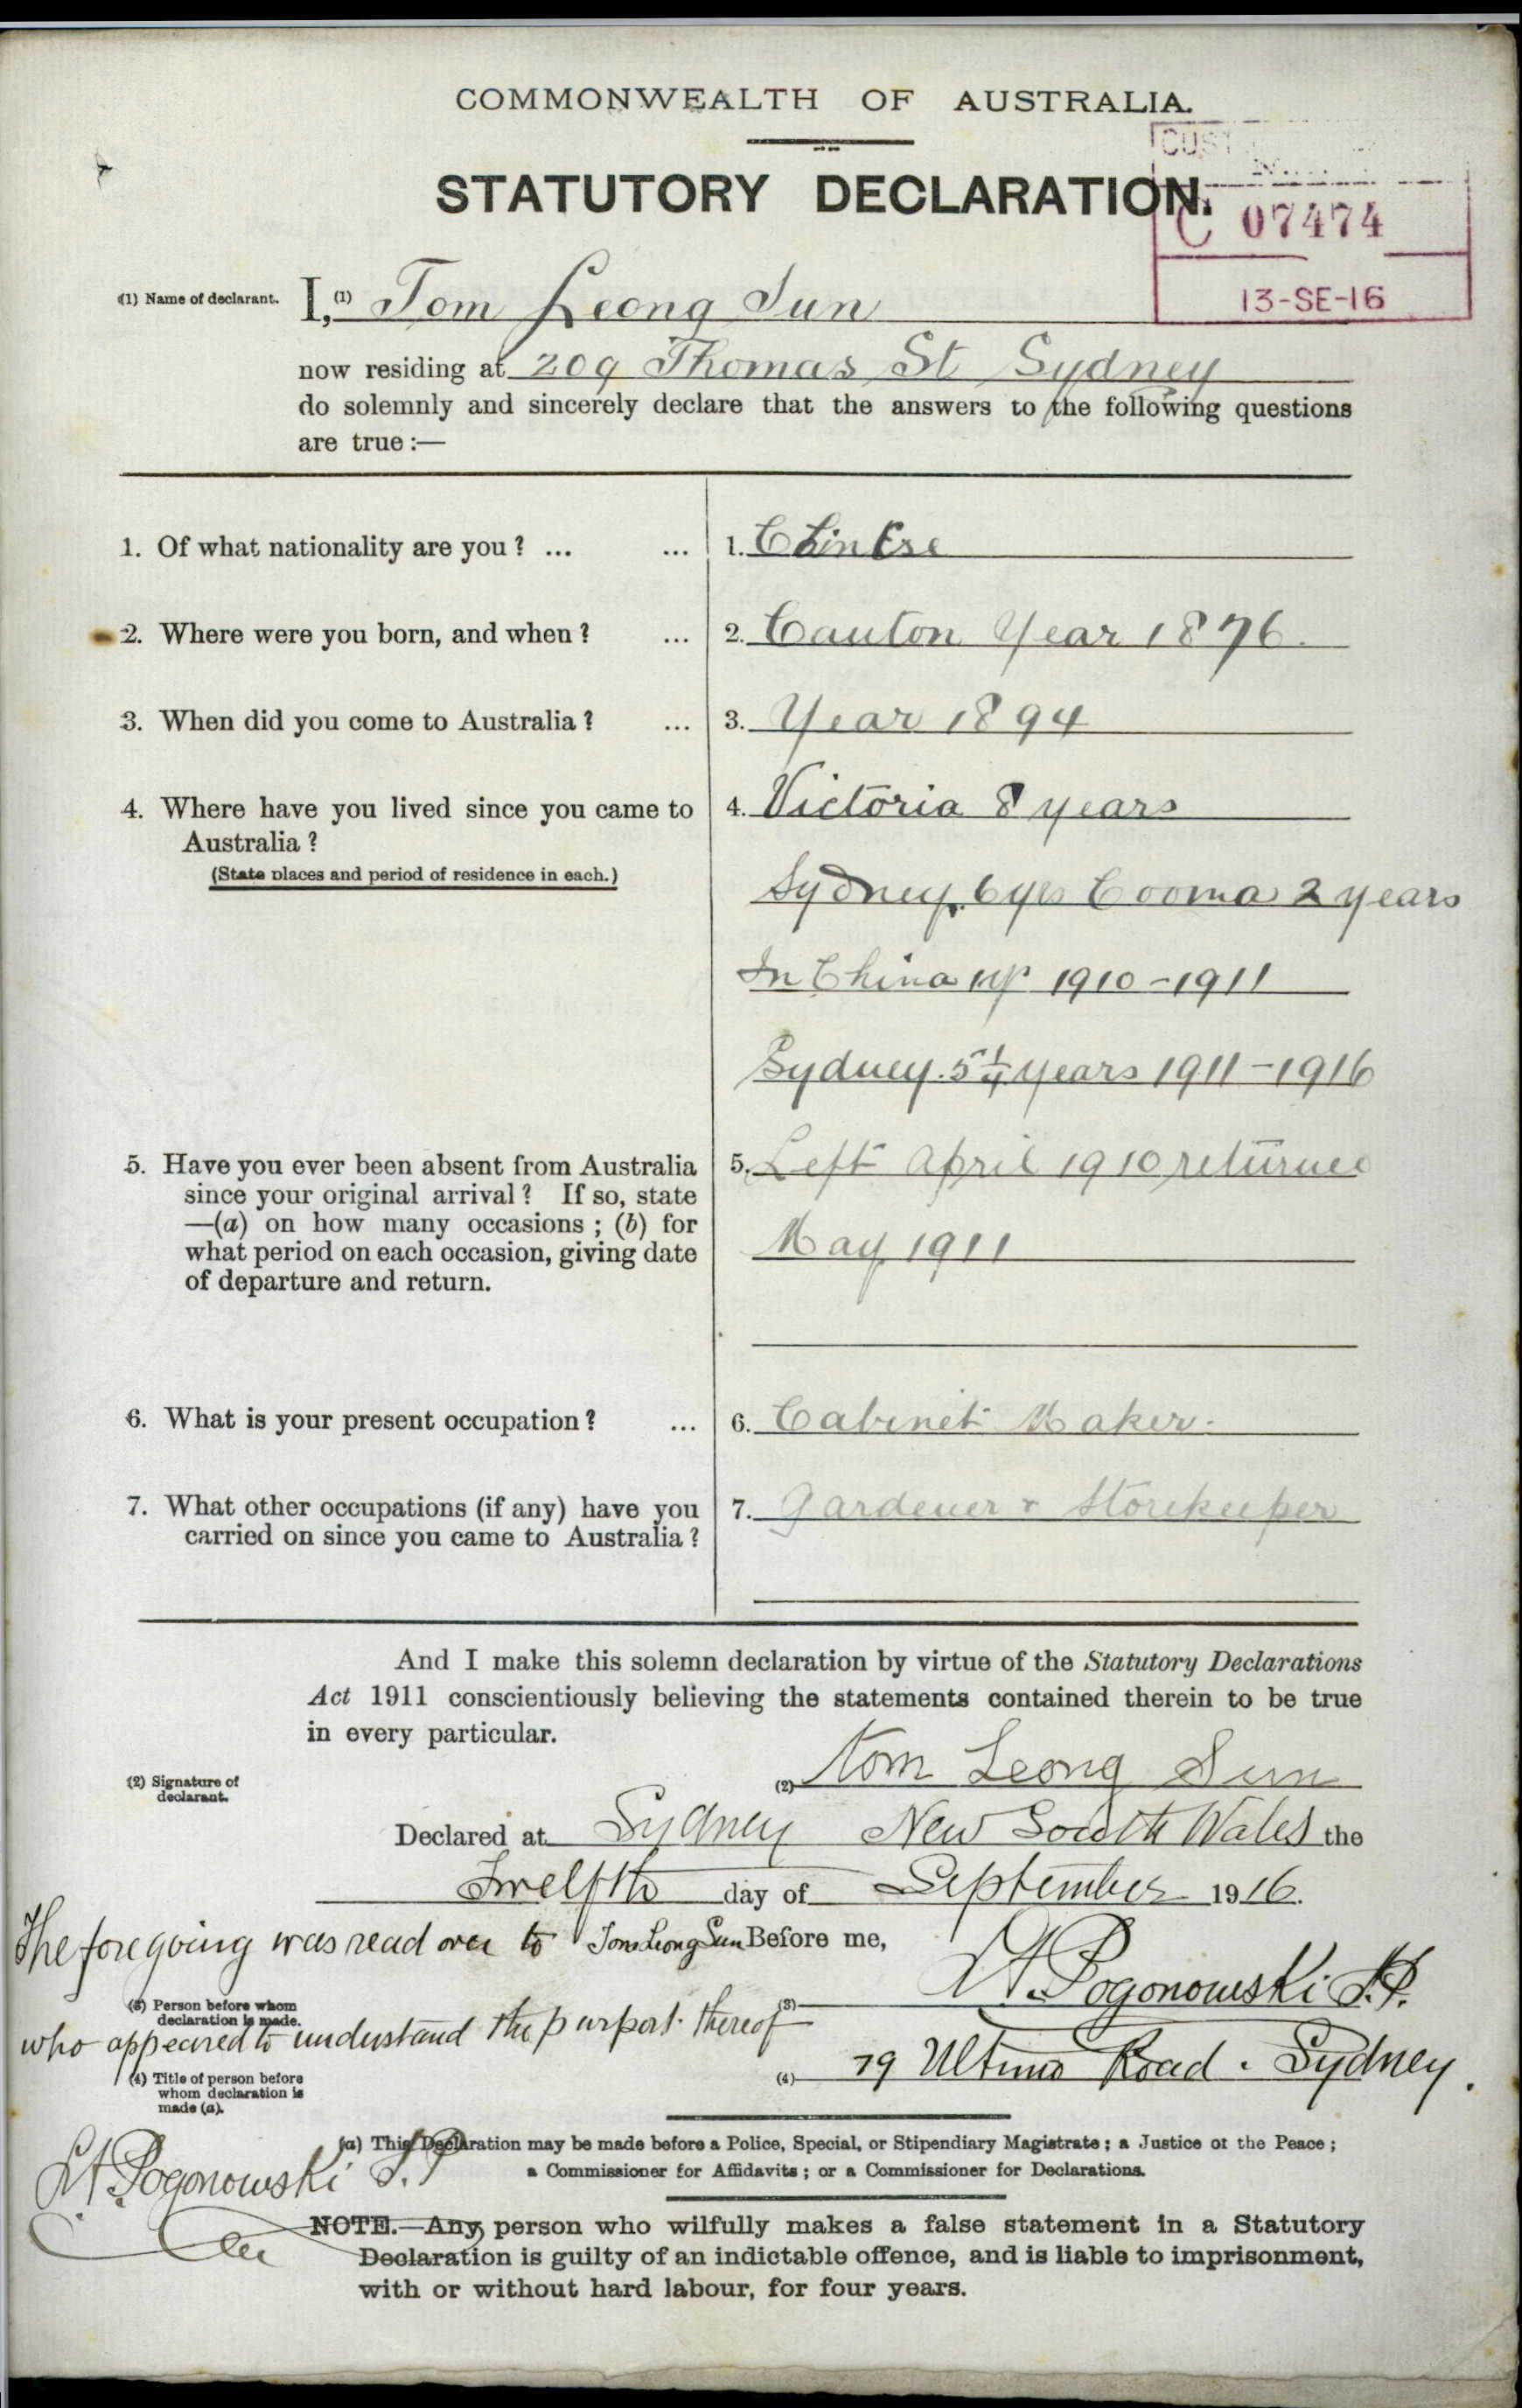 COMMONWEALTH OF AUSTRALIA.
STATUTORY DECLARATION.
C 07474
13-SE-16
(1) Name of declarant. I, (1) Tom Leong Sun
now residing at 209 Thomas St Sydney
do solemnly and sincerely declare that the answers to the following questions
are true:—
1. Of what nationality are you? ... ... 1. Chinese
2. Where were you born, and when? ... 2. Canton Year 1876.
3. When did you come to Australia? ... 3. Year 1894
4. Where have you lived since you came to 4. Victoria 8 years
Australia?
(State places and period of residence in each.)
Sydney 6 yrs Cooma 2 years
In China 1910-1911
Sydney. 5¼ years 1911-1916
5. Have you ever been absent from Australia 5. Left April 1910 returned
since your original arrival? If so, state
—(a) on how many occasions; (b) for
what period on each occasion, giving date May 1911
of departure and return.
6. What is your present occupation? ... 6. Cabinet Maker.
7. What other occupations (if any) have you 7. Gardener & Storekeeper
carried on since you came to Australia?
And I make this solemn declaration by virtue of the Statutory Declarations
Act 1911 conscientiously believing the statements contained therein to be true
in every particular.
(2) Signature of
declarant.
(2) Tom Leong Sun
Declared at Sydney New South Wales the
Twelfth day of September 1916.
The foregoing was read over to Tom Leong Sun Before me,
(3) Person before whom
declaration is made.
(3) Pogonowski J.P.
who appeared to understand the purport thereof
(4) Title of person before
whom declaration is
made (a).
(4) 79 Ultimo Road. Sydney.
(a) This Declaration may be made before a Police, Special, or Stipendiary Magistrate; a Justice of the Peace;
a Commissioner for Affidavits; or a Commissioner for Declarations.
Pogonowski J.P.
NOTE.—Any person who wilfully makes a false statement in a Statutory
Declaration is guilty of an indictable offence, and is liable to imprisonment,
with or without hard labour, for four years.